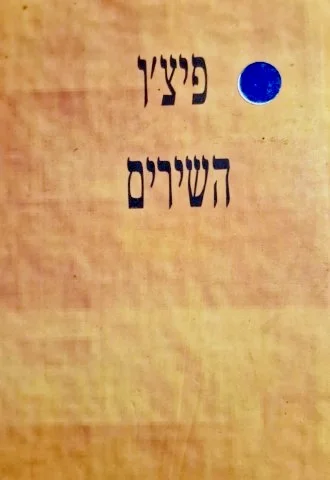 פיצ'ון
השירים